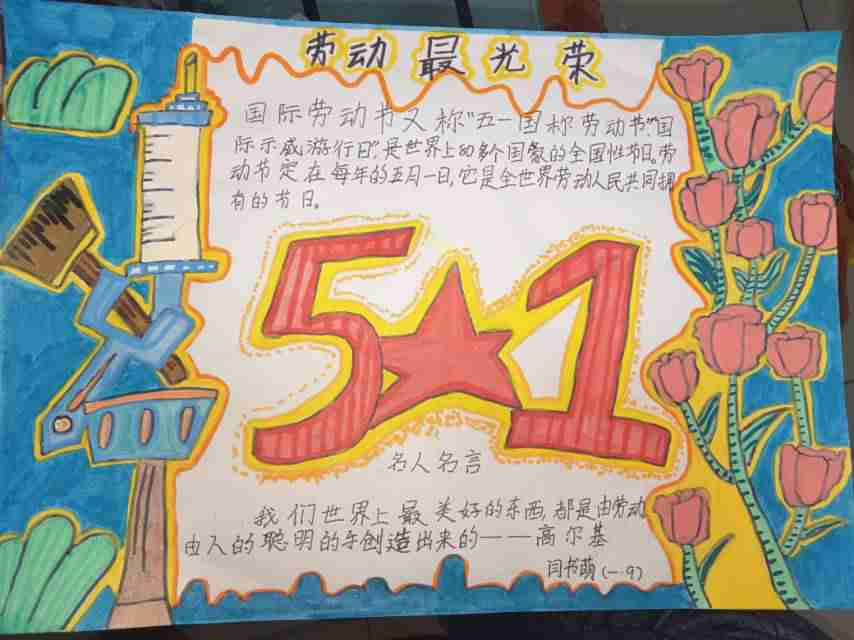 劳动最光荣
国际劳动节又称"五一国称劳动节""国
际示威游行日",是世界上80多个国家的全国性节日。劳
动节定在每年的五月一日,它是全世界劳动人民共同拥
有的节日。
5★1
名人名言
我们世界上最美好的东西,都是由劳动
由人的聪明的手创造出来的——高尔基
闫书萌(一.9)